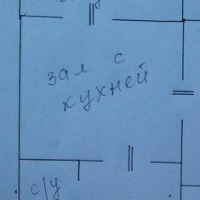 зал с
кухней
с/у